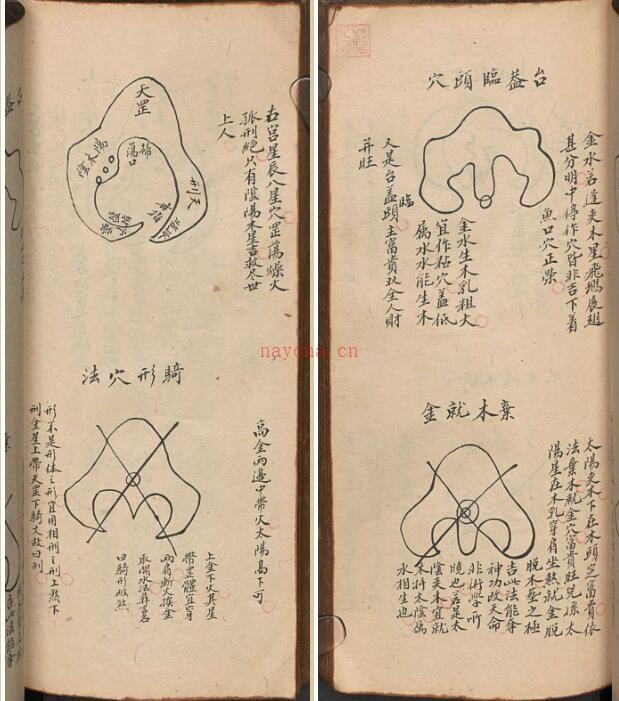 台蓋臨頭穴
金水若逢夾木星飛鵝展翅
甚分明中停作穴皆非吉下着
魚口穴正榮
金水生木乳粗大
宜作粘穴蓋低
属水水能生木
又是台盖臨頭主富貴双全人財
并旺
棄木就金
太陽夾木下在木頭定富貴依
法棄木就金穴富貴旺兒孫太
陽星在木乳穿肩坐煞就金脱
脱木垂之極
吉此法能奪
神功改天命
非術學所
曉也若是太
陰夾木宜就
木扦太陰属
水相生也
天罡
掃蕩口
陰木陽
天刑
燥火
右宮星辰八星穴罡蕩燥火
孤刑絶只有陰陽木星吉救尽世
上人
騎形穴法
高金两邊中帶火太陽高下可
上金下火其星
帶罡體宜穿
两肩断火挨金
取開水法葬名
曰騎形破煞
形不是形体之形宜用相刑之刑上煞下
刑金星上帶天罡下騎火故曰刑
nayona.cn